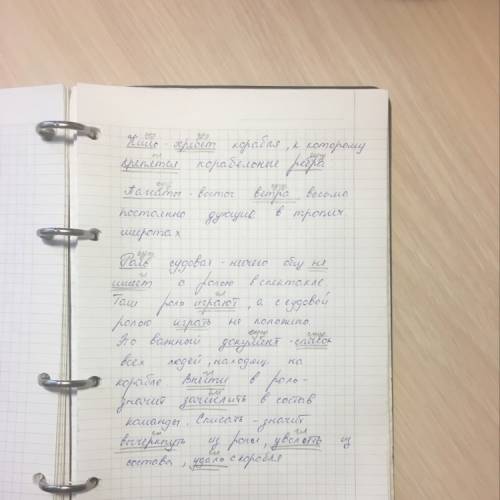 Киль хребет корабля, к которому
крепятся корабельные ребра
Пассаты - восточ ветра весьма
постоянно дующие в тропич
широтах
Роль судовая - ничего общ не
имеет с ролью в спектакле.
Там роль играют, а с судовой
ролью играть не положено
Это важный документ - список
всех людей, находящ. на
корабле Внести в роль -
значит зачислить в состав
команды. Списать - значит
вычеркнуть из роли, уволить из
состава, удали с корабля